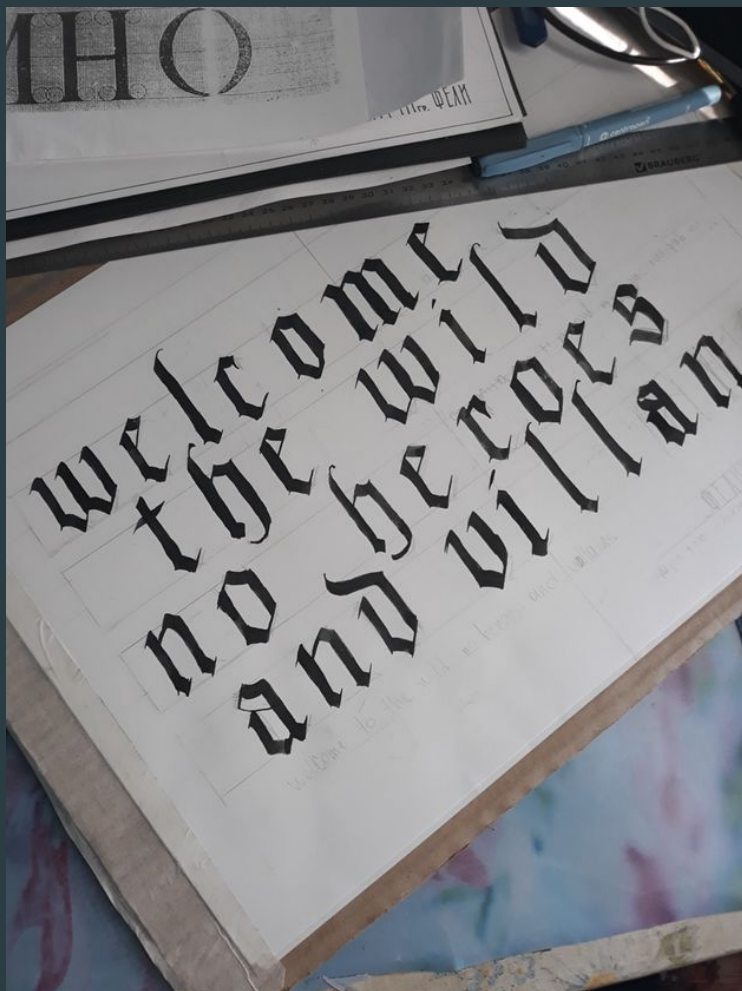 ИНО
гр. ФЕЛИ
centropen
BRAUBERG
welcome
the wild
no heroes
and villan
welcome to the wild no heroes and villains